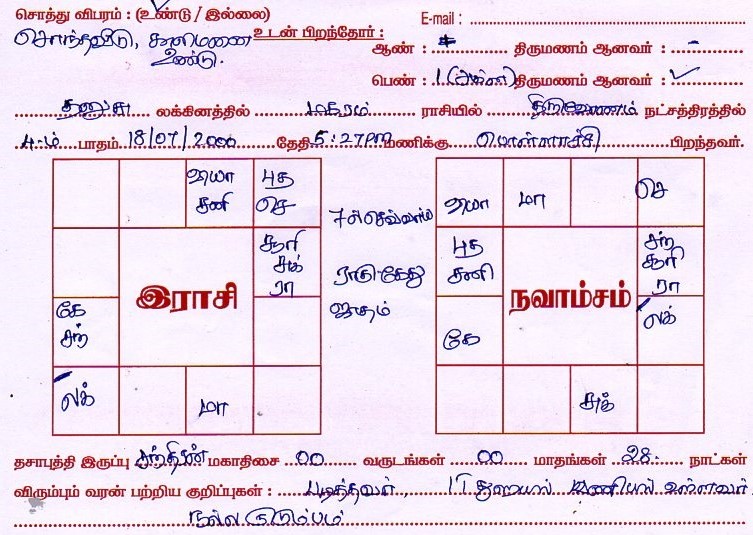 சொத்து விபரம் : (உண்டு / இல்லை) E-mail :
சொந்தவீடு, காலிமனை உடன் பிறந்தோர் : ஆண் : திருமணம் ஆனவர் : -
உண்டு.
பெண் : 1 திருமணம் ஆனவர் : ✓
தனுசு லக்கினத்தில் மகரம் ராசியில் திருவோணம் நட்சத்திரத்தில்
4-ம் பாதம் 18/07/2000 தேதி 5:27PM மணிக்கு பொள்ளாச்சி பிறந்தவர்.
வியா சனி
புத செ
7ல் செவ்வாய்
வியா
மா
செ
சூரி சுக் ரா
புத சனி
சந் சூரி ரா
இராசி
ராகு கேது
நவாம்சம்
கே சந்
கே
லக்
லக்
மா
சுக்
தசாபுத்தி இருப்பு சந்திரன் மகாதிசை 00 வருடங்கள் 00 மாதங்கள் 28 நாட்கள்
விரும்பும் வரன் பற்றிய குறிப்புகள் : படித்தவர், IT துறையில் பணியில் உள்ளவர்
நல்ல குடும்பம்